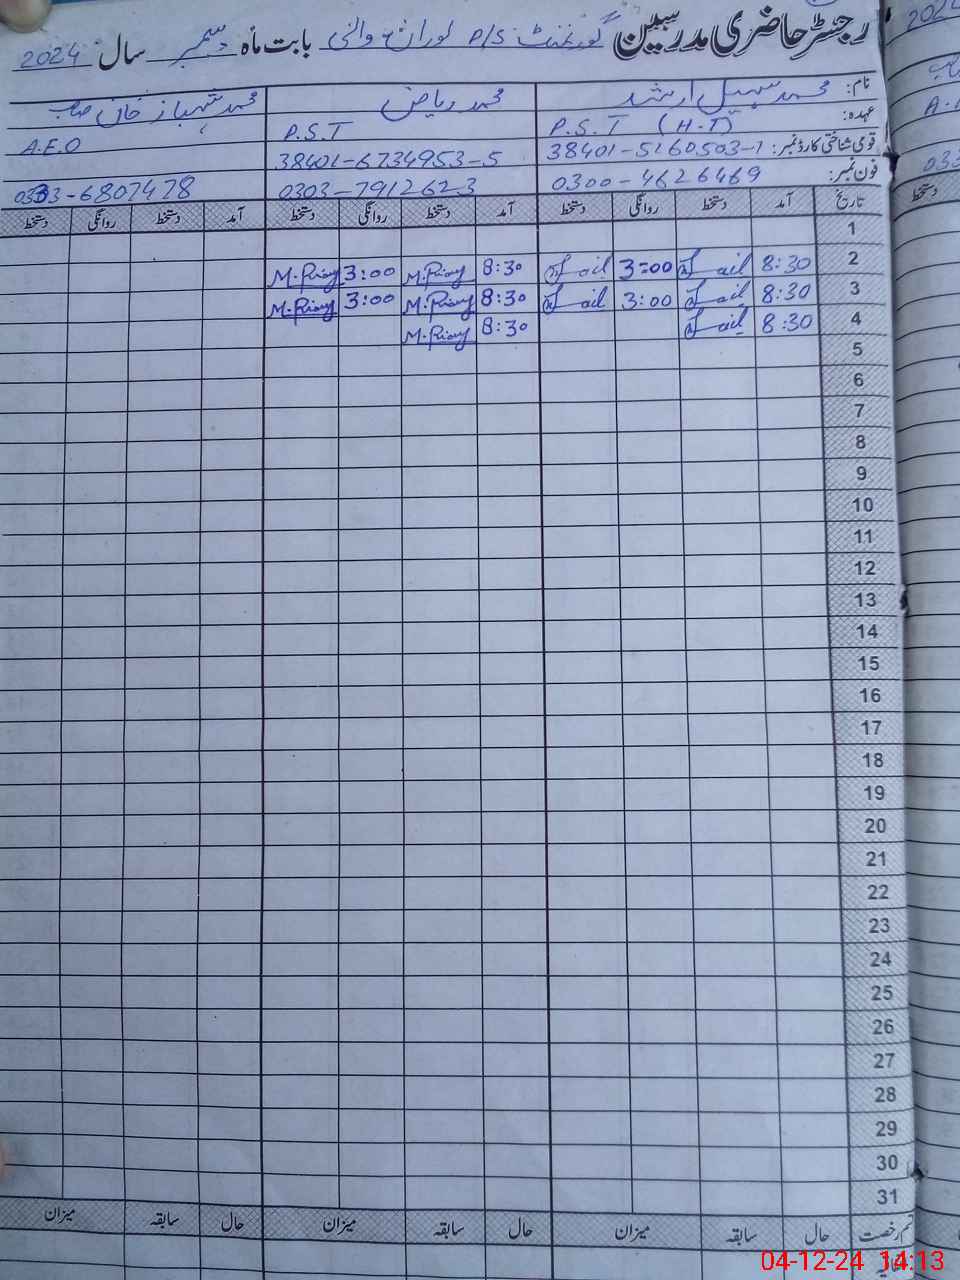 رجسٹر حاضری مدرسین گورنمنٹ P/S لوراں والی بابت ماہ دسمبر سال 2024
نام: محمد سہیل ارشد محمد ریاض محمد شہباز خان صاحب
عہدہ: P.S.T (H.T) P.S.T A.E.O
قومی شناختی کارڈ نمبر: 38401-5160503-1 38401-6734953-5
فون نمبر: 0300-4626469 0303-7912623 0333-6807478
تاریخ آمد دستخط روانگی دستخط آمد دستخط روانگی دستخط آمد دستخط روانگی دستخط
1
2 8:30 3:00 8:30 M.Riaz 3:00 M.Riaz
3 8:30 3:00 8:30 M.Riaz 3:00 M.Riaz
4 8:30 8:30 M.Riaz
5
6
7
8
9
10
11
12
13
14
15
16
17
18
19
20
21
22
23
24
25
26
27
28
29
30
31
قسم رخصت حال سابقہ میزان حال سابقہ میزان حال سابقہ میزان
04-12-24 14:13